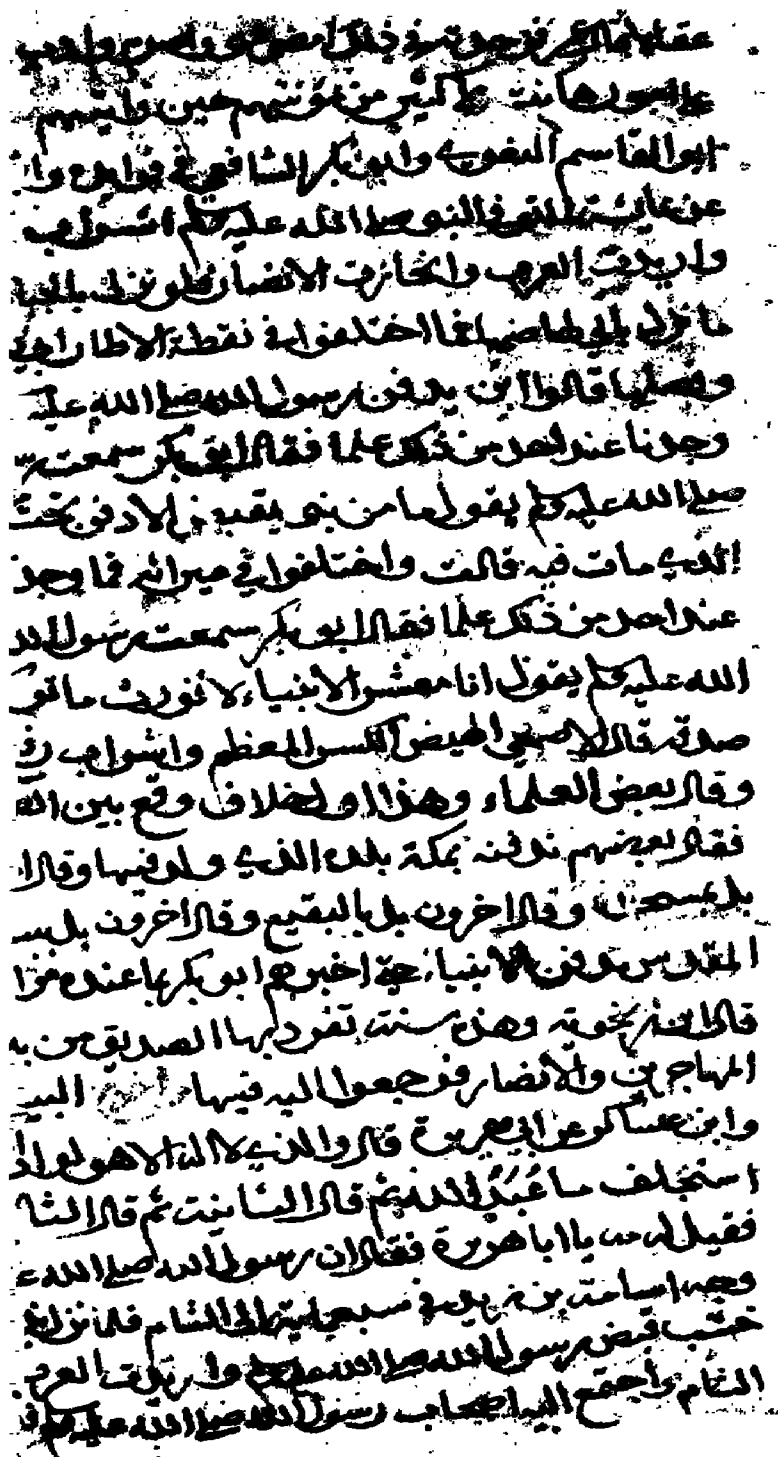 عقالا لقاتلتهم فوجدته في ذلك امضى مني واصوب وادب
على امور هانت علي كثير من مؤنتهم حين وليتهم
ابو القاسم البغوي وابو بكر الشافعي في فوايده وا
عن عائشة قالت توفي النبي صلى الله عليه وسلم اشراب
وارتدت العرب وانحازت الانصار فلو نزل بالجبا
ما نزل بابي لهاضها فما اختلفوا في نقطة الا طار ابي
وفصلها قالوا اين يدفن رسول الله صلى الله عليه
وجدنا عند احد من ذلك علما فقال ابو بكر سمعت
صلى الله عليه وسلم يقول ما من نبي يقبض الا دفن تحت
الذي مات فيه قالت واختلفوا في ميراثه فما وجد
عند احد من ذلك علما فقال ابو بكر سمعت رسول الله
الله عليه وسلم يقول انا معشر الانبياء لا نورث ما تر
صدقة قال الاصمعي الهيض الكسر للعظم واشراب رفع
وقال بعض العلماء وهذا اول خلاف وقع بين ال
فقال بعضهم ندفنه بمكة بلده الذي ولد فيها وقال ا
بل بمسجده وقال اخرون بل بالبقيع وقال اخرون بل ببيت
المقدس مدفن الانبياء حتى اخبرهم ابو بكر بما عنده من
قال ابن زنجويه وهذه سنة تفرد بها الصديق من بين
المهاجرين والانصار فرجعوا اليه فيها واخرج البيـ
وابن عساكر عن ابي هريرة قال والذي لا اله الا هو لولا
استخلف ما عبد الله ثم قال الثانية ثم قال الثا
فقيل له مه يا ابا هريرة فقال ان رسول الله صلى الله
وجه اسامة بن زيد في سبعمائة الى الشام فلما نزل بذي
خشب قبض رسول الله صلى الله عليه وسلم وارتدت العرب
الشام واجتمع اليه اصحاب رسول الله صلى الله عليه وسلم